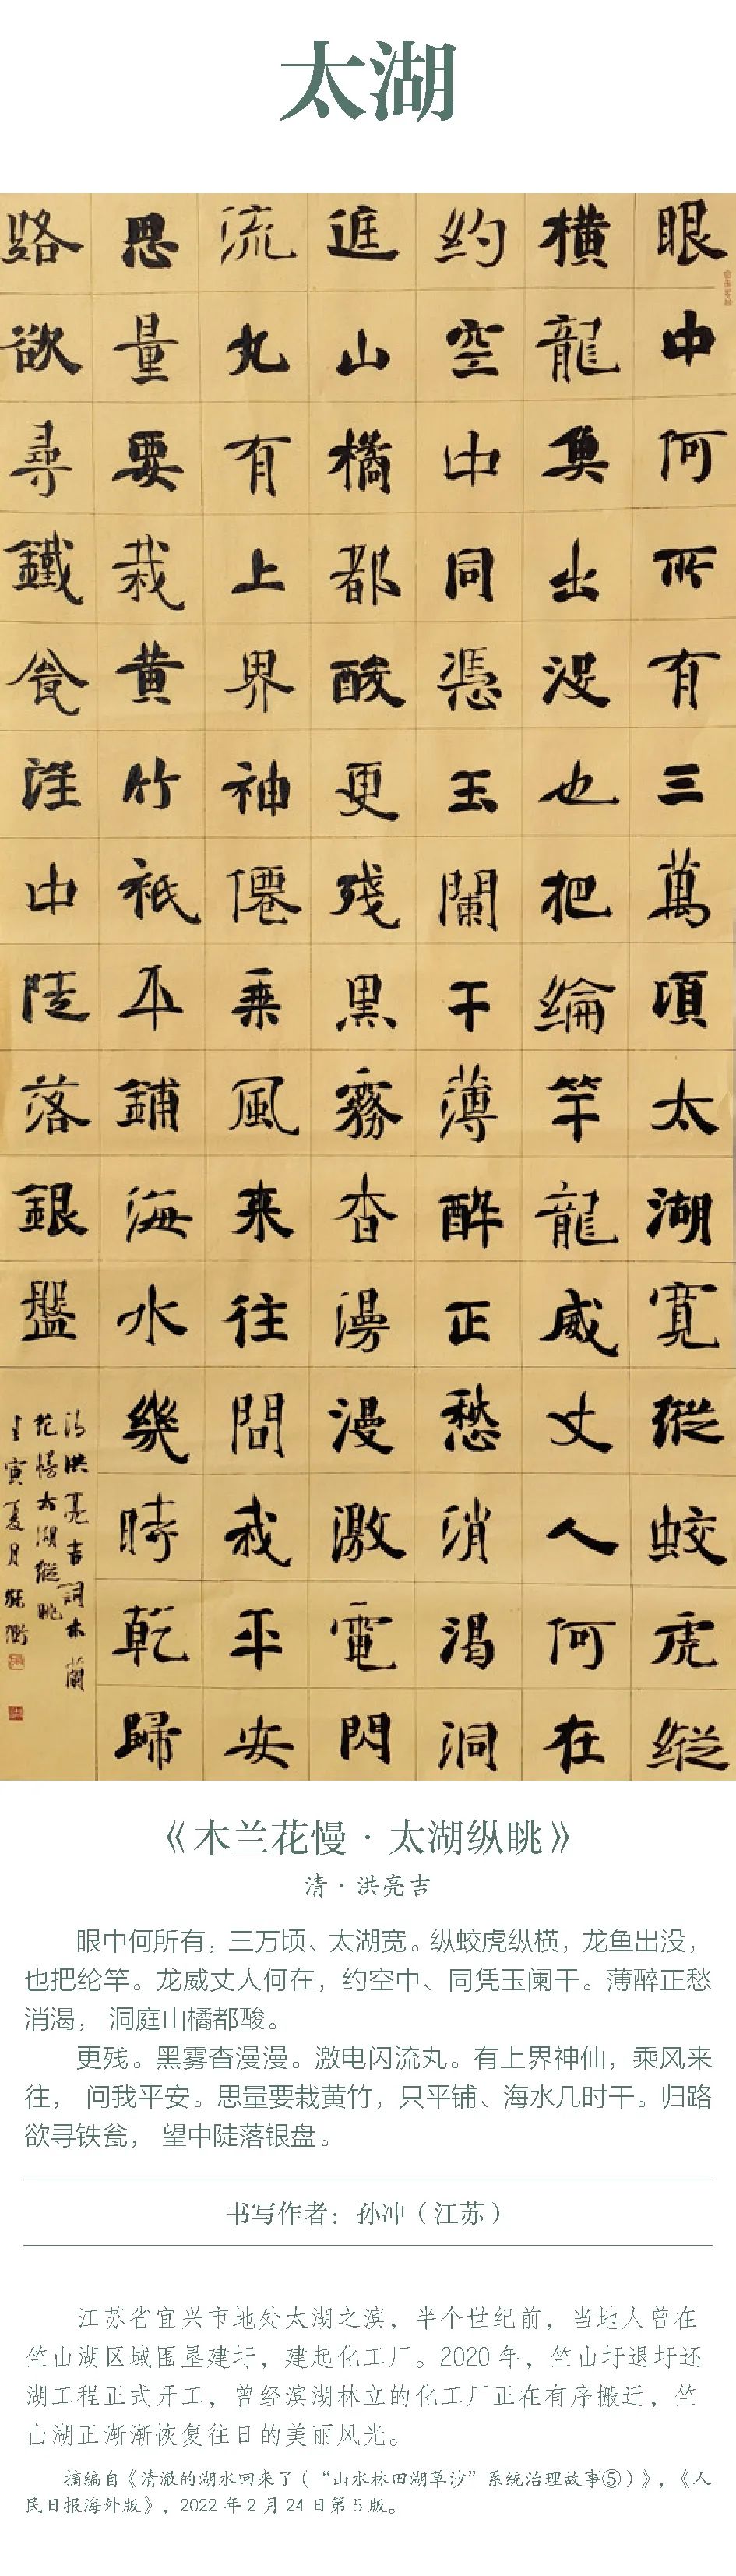 太湖
眼中何所有三萬頃太湖寬縱蛟虎縱
橫龍魚出沒也把綸竿龍威丈人何在
約空中同憑玉闌干薄醉正愁消渴洞
庭山橘都酸更殘黑霧杳漫漫激電閃
流丸有上界神僊乘風来往問我平安
思量要栽黄竹祇平鋪海水幾時乾歸
路欲尋鐵瓮望中陡落銀盤
清洪亮吉詞木蘭
花慢太湖縱眺
壬寅夏月孫衝
《木兰花慢·太湖纵眺》
清·洪亮吉
眼中何所有，三万顷、太湖宽。纵蛟虎纵横，龙鱼出没，
也把纶竿。龙威丈人何在，约空中、同凭玉阑干。薄醉正愁
消渴， 洞庭山橘都酸。
更残。黑雾杳漫漫。激电闪流丸。有上界神仙，乘风来
往， 问我平安。思量要栽黄竹，只平铺、海水几时干。归路
欲寻铁瓮， 望中陡落银盘。
书写作者：孙冲（江苏）
江苏省宜兴市地处太湖之滨，半个世纪前，当地人曾在
竺山湖区域围垦建圩，建起化工厂。2020 年，竺山圩退圩还
湖工程正式开工，曾经滨湖林立的化工厂正在有序搬迁，竺
山湖正渐渐恢复往日的美丽风光。
摘编自《清澈的湖水回来了（“山水林田湖草沙”系统治理故事⑤）》，《人
民日报海外版》，2022 年 2 月 24 日第 5 版。